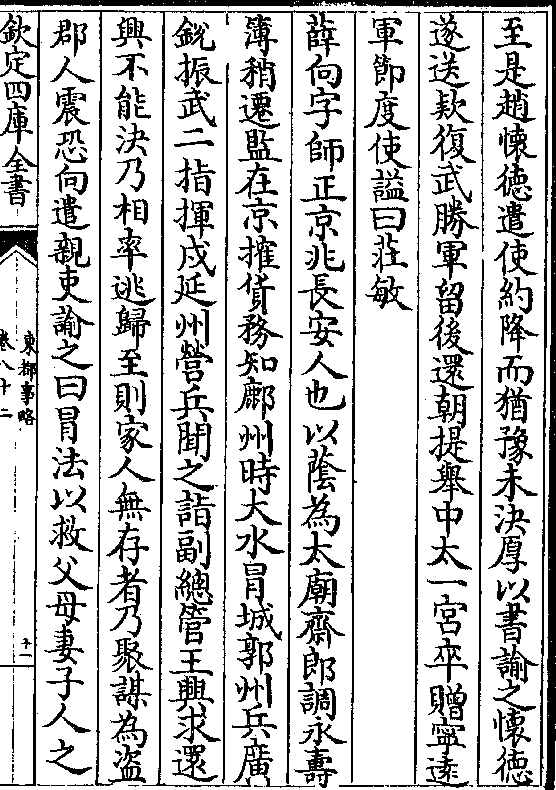 至是趙懷德遣使約降而猶豫未決厚以書諭之懷德
遂送欵復武勝軍留後還朝提舉中太一宮卒贈寧逺
軍節度使謚曰莊敏
薛向字師正京兆長安人也以䕃為太廟齋郎調永壽
簿稍遷監在京㩁貨務知鄜州時大水冒城郭州兵廣
銳振武二指揮戍延州營兵聞之詣副總管王興求還
興不能決乃相率逃歸至則家人無存者乃聚謀為盜
郡人震恐向遣親吏諭之曰冒法以救父母妻子人之
欽定四庫全書
東都事略
卷八十二
十一